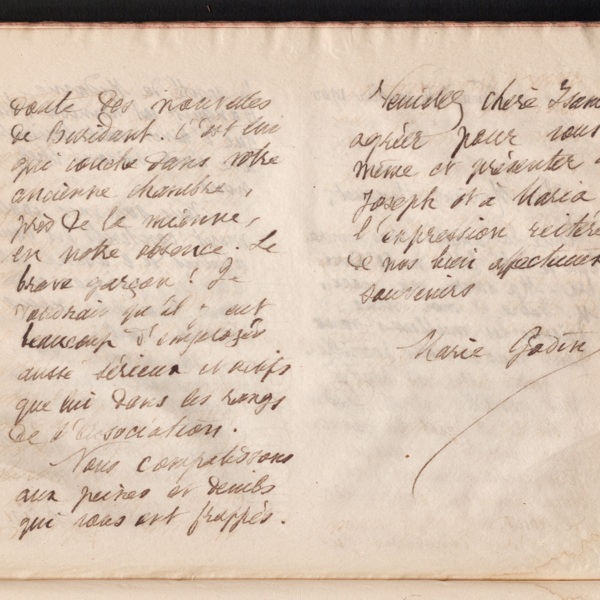 doute des nouvelles
de Buridant. C'est lui
qui couche dans votre
ancienne chambre,
près de la mienne,
en notre absence. Le
brave garçon ! Je
voudrais qu'il y eut
beaucoup d'employés
aussi sérieux et actifs
que lui dans les rangs
de l'association.
Nous compatissons
aux peines et deuils
qui vous ont frappés.
Veuillez, chère
agréer pour vous
même et présenter à
Joseph et à Maria
l'expression réitérée
de nos bien affectueux
souvenirs
Marie Godin